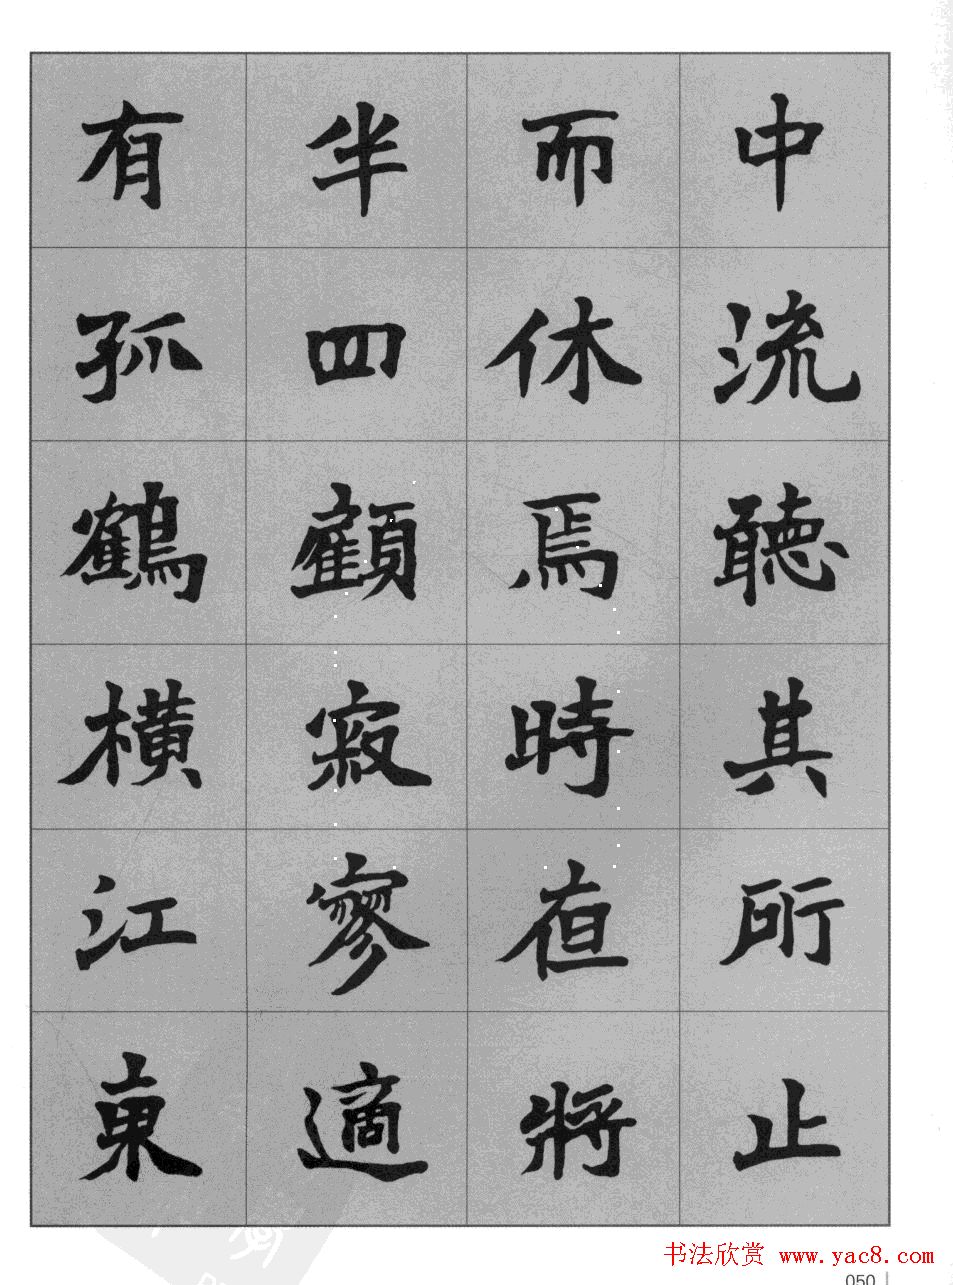 中流聽其所止
而休焉時夜將
半四顧寂寥適
有孤鶴橫江東
书法欣赏 www.yac8.com
050